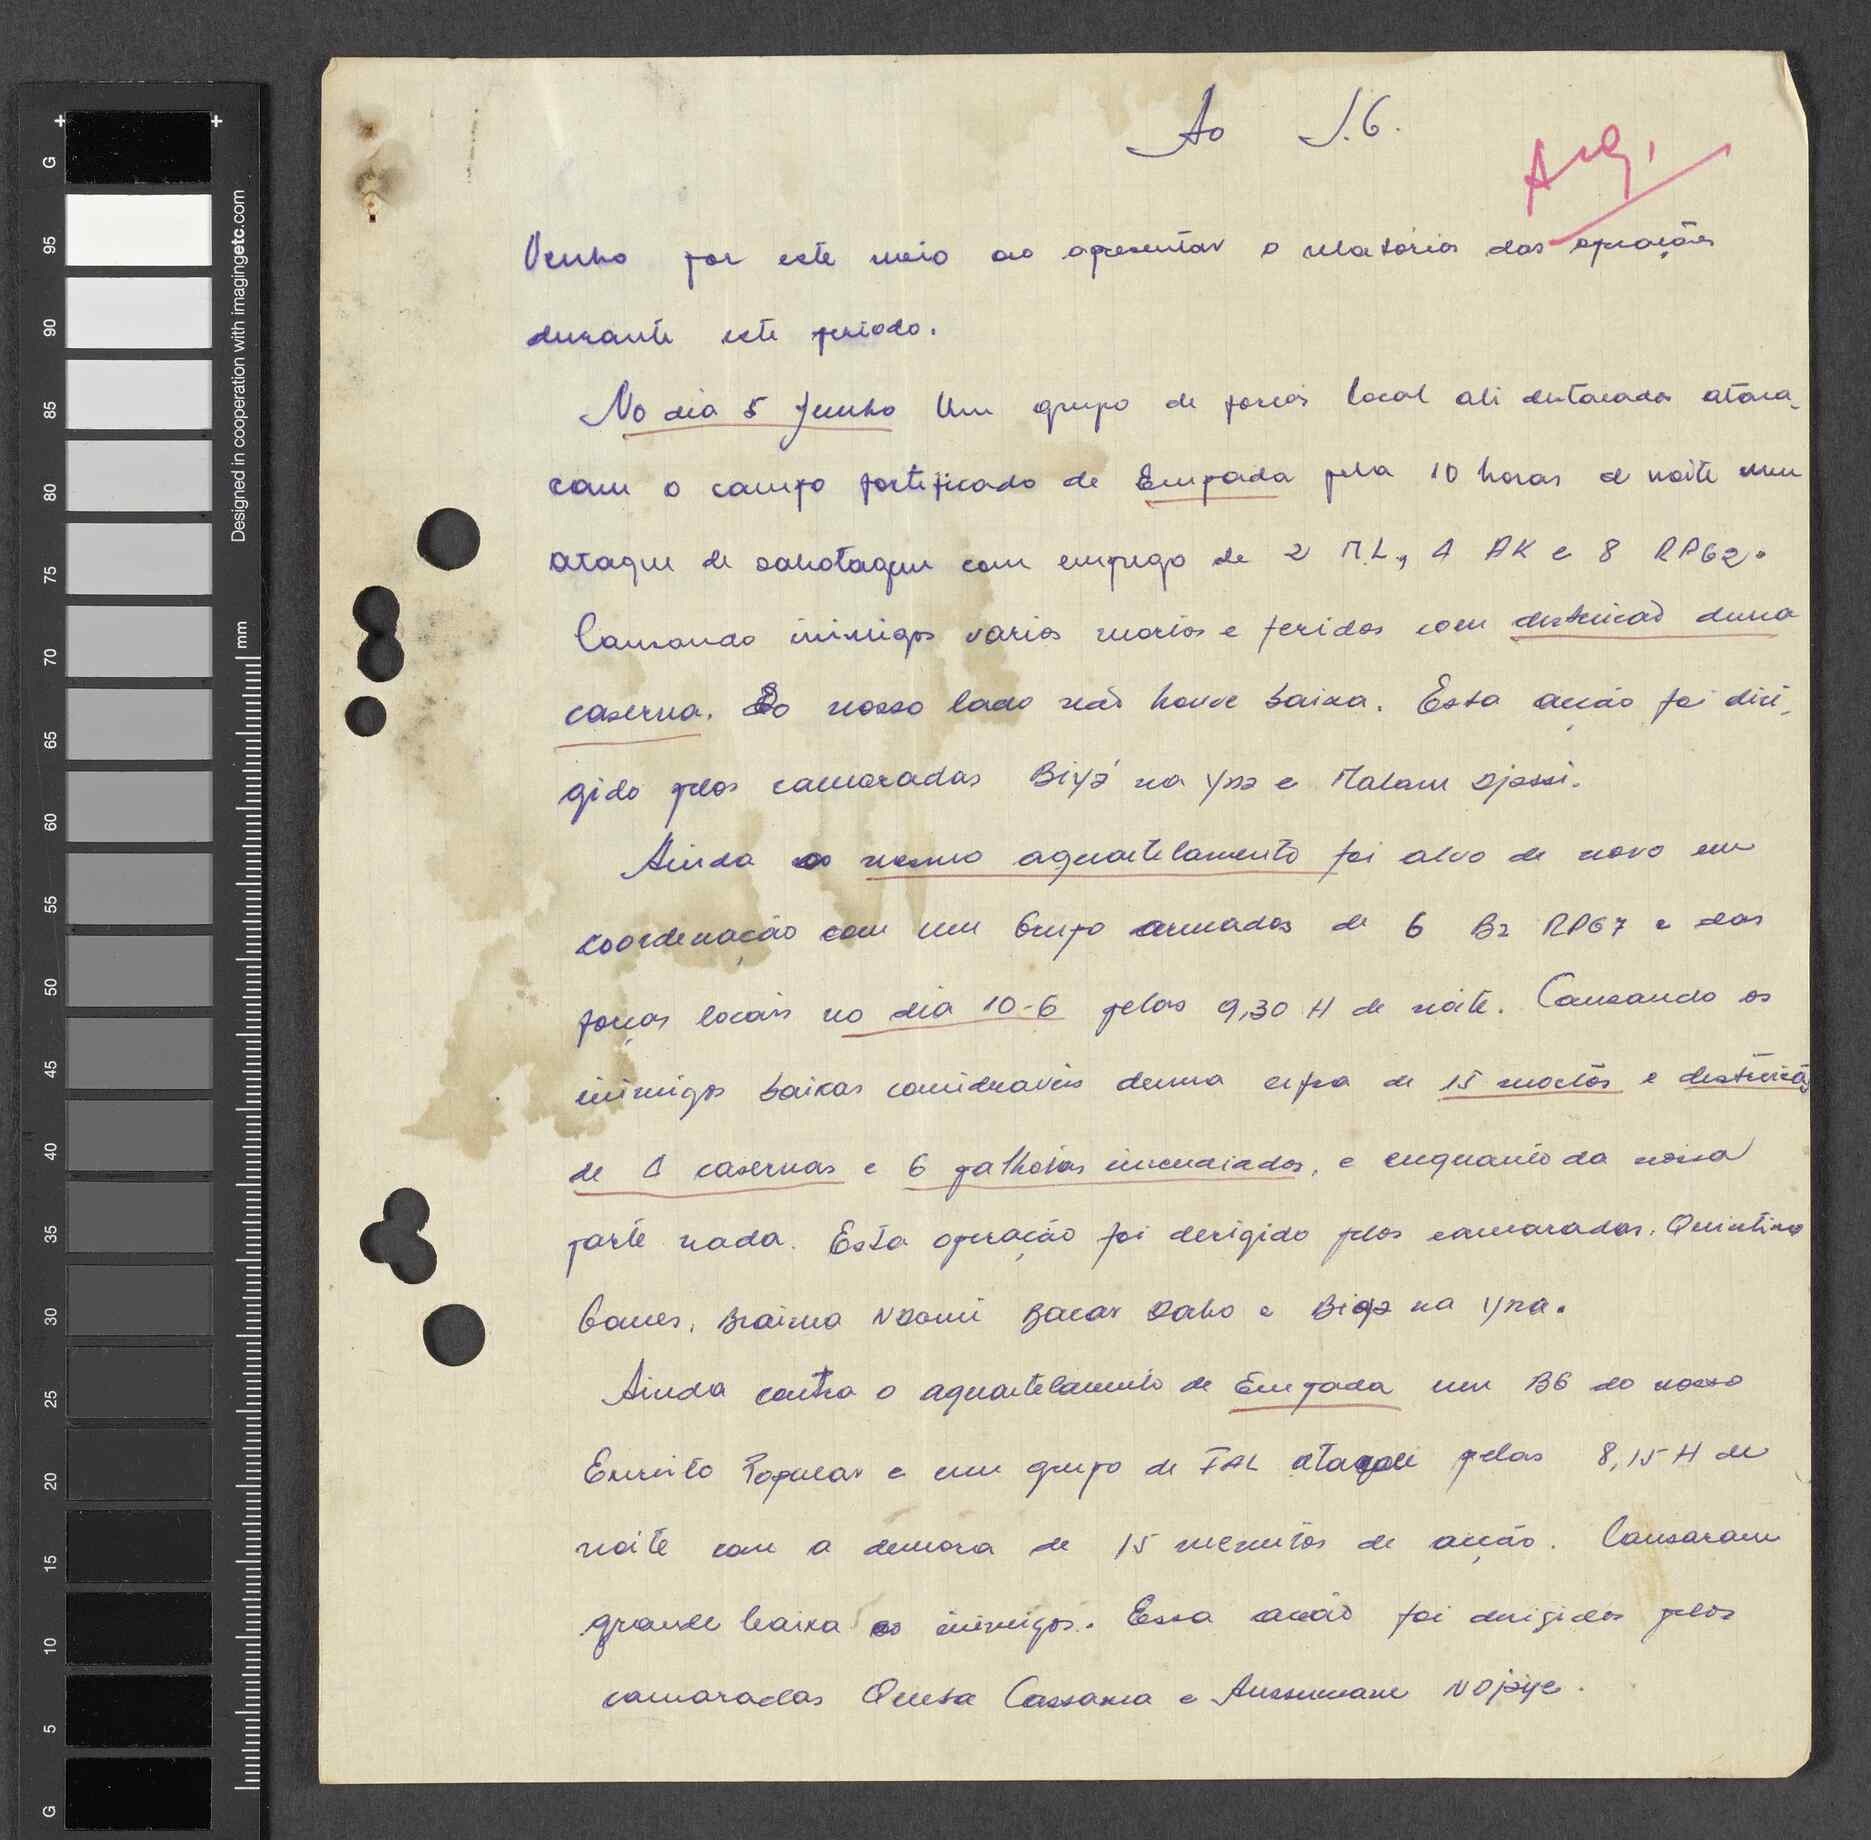 Ao S.G.
Arq.
Venho por este meio ao apresentar o relatorios das operações
durante este periodo.
No dia 5 Junho Um grupo de forças local ali destacados ataca-
cam o campo fortificado de Empada pela 10 horas de noite num
ataque de sabotagem com emprego de 2 M.L., 4 AK e 8 RPG2.
Causando inimigos varios mortos e feridos com destruicaõ duma
caserna. Do nosso lado não houve baixa. Esta acção foi diri-
gido pelos camaradas Biyá na Yna e Malam Djassi.
Ainda o mesmo aquartelamento foi alvo de novo em
coordenação com um Grupo armados de 6 Bz RPG7 e das
forças locais no dia 10-6 pelas 9,30 H de noite. Causando os
inimigos baixas consideraveis duma cifra de 15 mortos e destruição
de 4 casernas e 6 palhotas incendiados, e enquanto da nossa
parte nada. Esta operação foi derigido pelos camaradas. Quintino
Gomes, Braima Bacar Dabo e na Yna.
Ainda contra o aquartelamento de Empada um BG do nosso
Exercito Popular e um grupo de FAL pelas 8,15 H de
noite com a demora de 15 menutos de acção. Causaram
grande baixa os inimigos. Essa acção foi dirigidos pelos
camaradas Queba Cassama e Aussumane